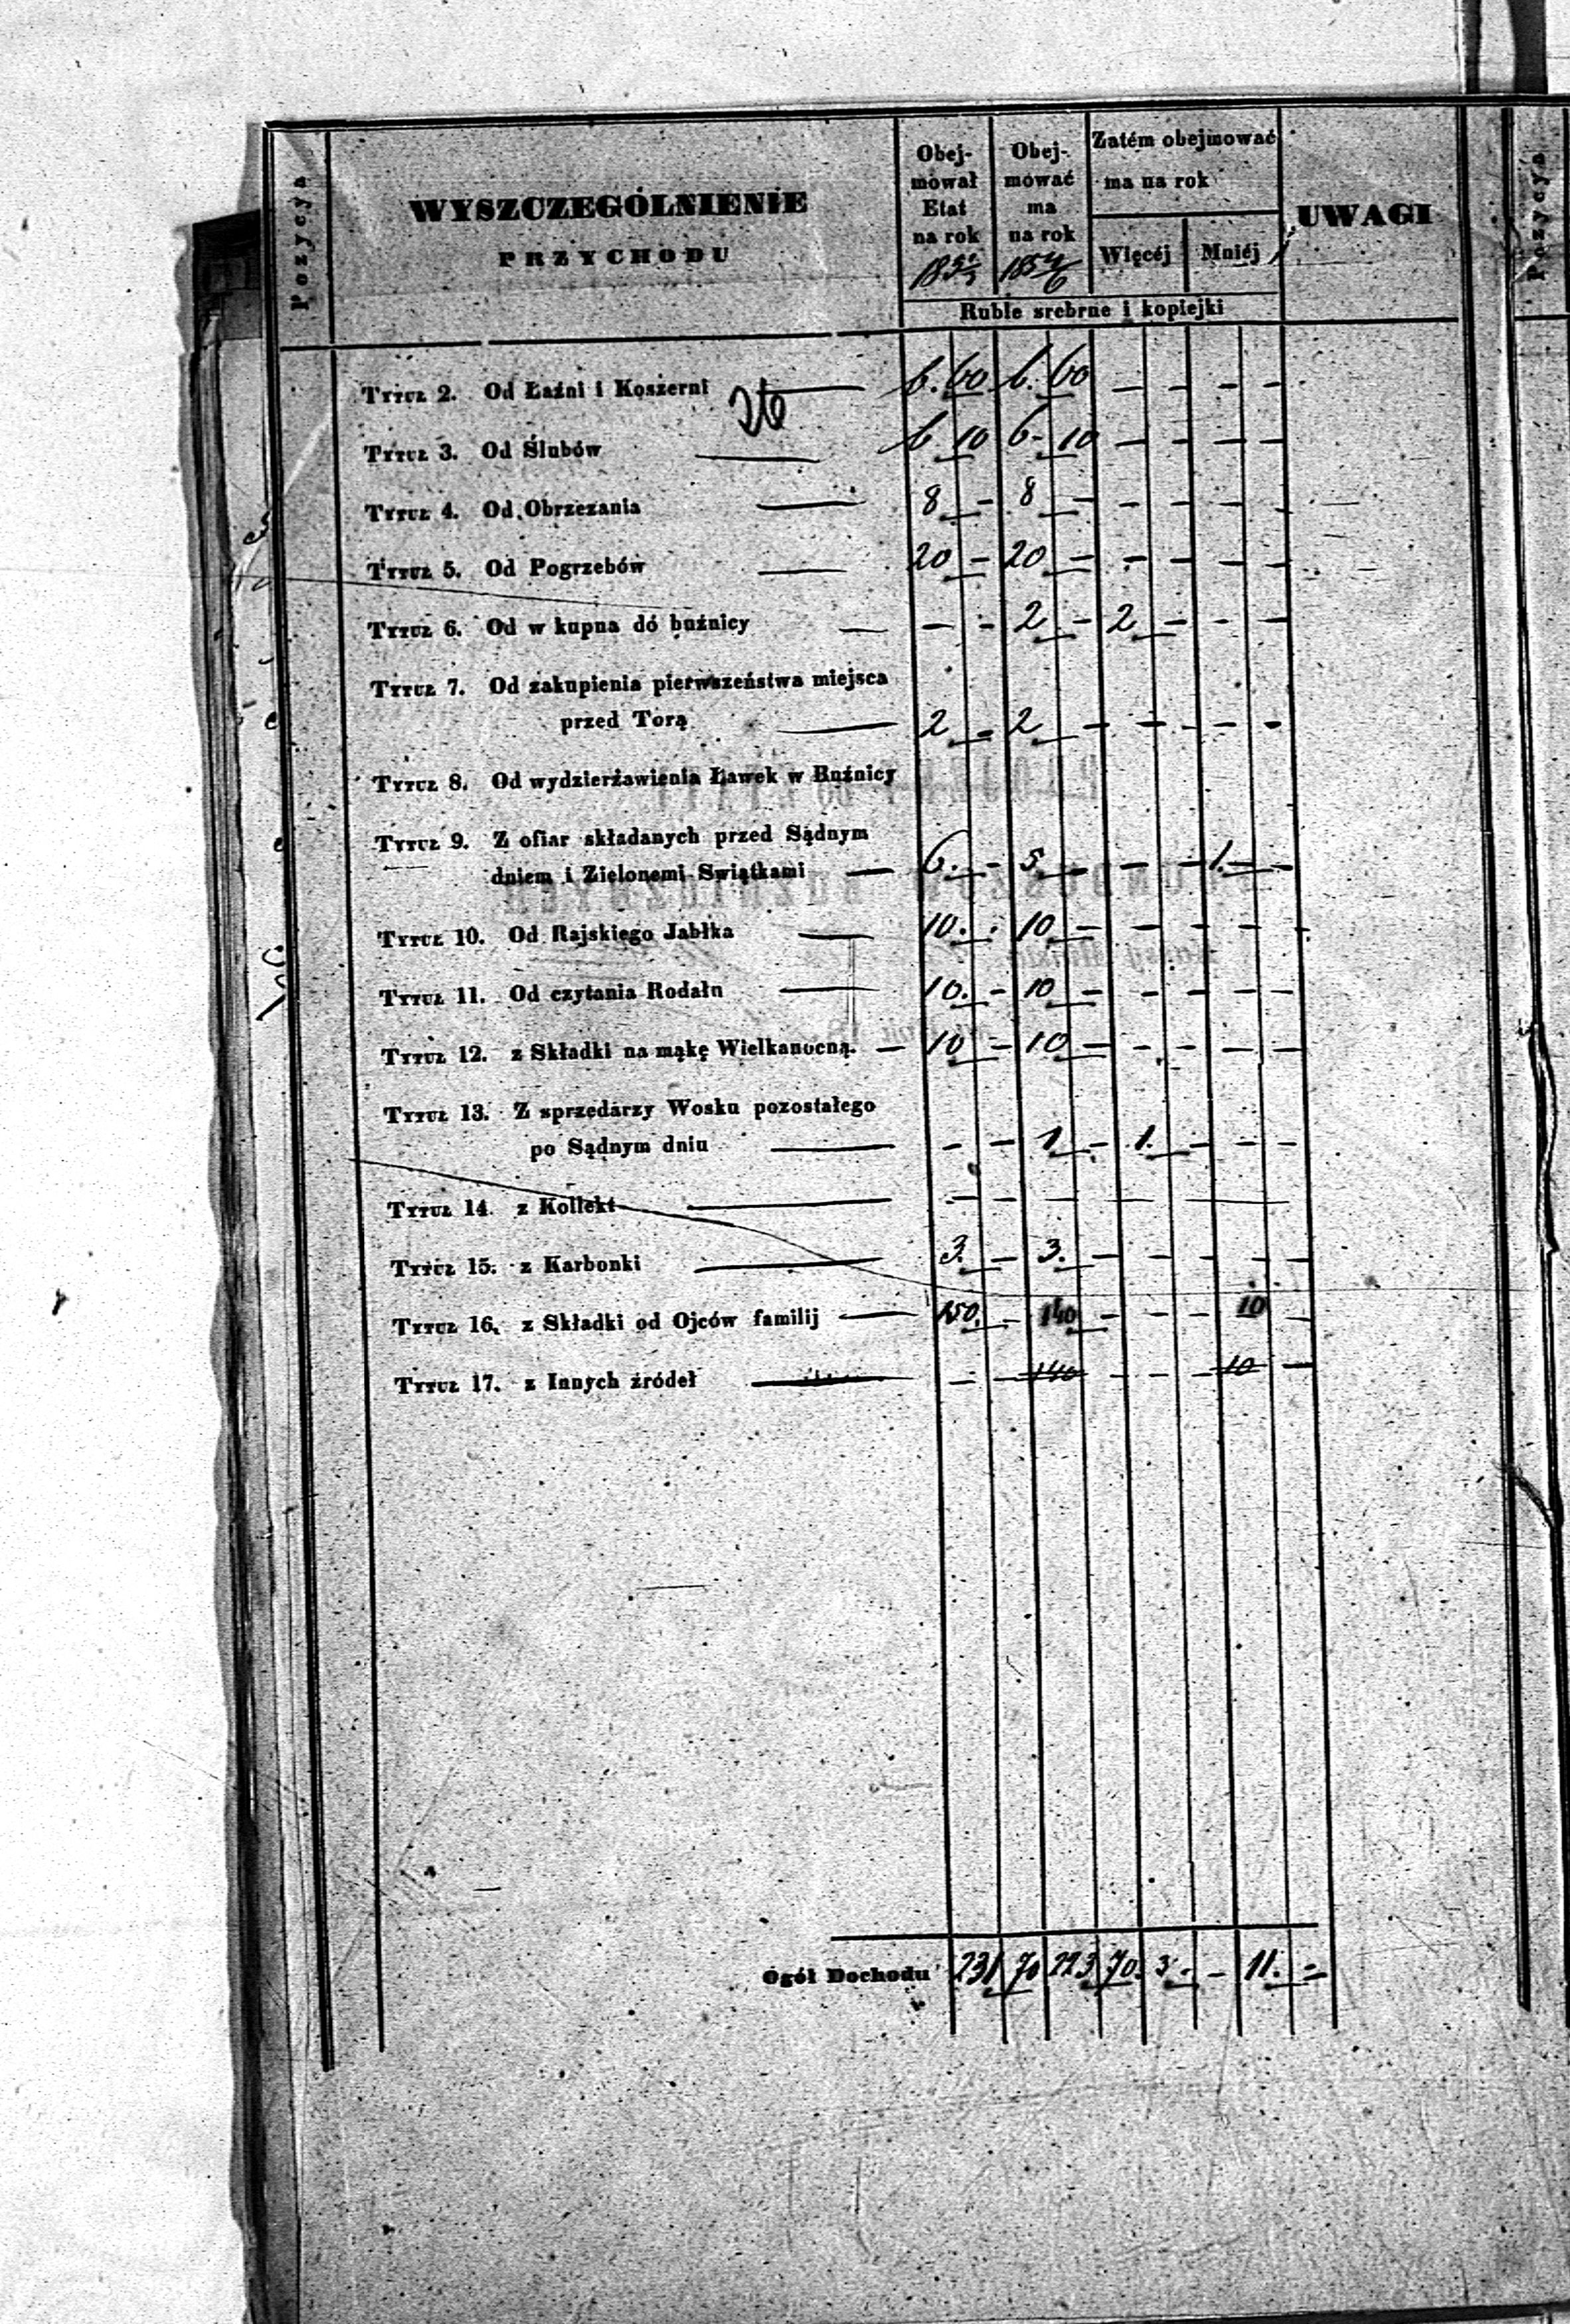 Pozycya
WYSZCZEGÓLNIENIE
PRZYCHODU
Obej-
mował
Etat
na rok
Obej-
mować
ma
na rok
1854/6
Zatém obejmować
ma na rok
Więcéj
Mniéj
Ruble srebrne i kopiejki
UWAGI
Pozycya
Tytuł 2. Od Łaźni i Koszerni — 6. 60 6. 60 — — — —
Tytuł 3. Od Ślubów — 6 10 6 - 10 — — — —
Tytuł 4. Od Obrzezania — 8 — 8 — — — — —
Tytuł 5. Od Pogrzebów — 20 — 20 — — — — —
Tytuł 6. Od w kupna do buźnicy — — — 2 — 2 — — —
Tytuł 7. Od zakupienia pierwszeństwa miejsca
przed Torą — 2 — 2 — — — — —
Tytuł 8. Od wydzierżawienia Ławek w Buźnicy
Tytuł 9. Z ofiar składanych przed Sądnym
dniem i Zielonemi Swiątkami — 6. — 5. — — — 1. —
Tytuł 10. Od Rajskiego Jabłka — 10. - 10 — — — — —
Tytuł 11. Od czytania Rodału — 10. — 10 — — — — —
Tytuł 12. z Składki na mąkę Wielkanocną. — 10 — 10 — — — — —
Tytuł 13. Z sprzedarzy Wosku pozostałego
po Sądnym dniu — — — 1 — 1. — — —
Tytuł 14. z Kollekt — — — — — — — — —
Tytuł 15. z Karbonki — 3. — 3. — — — — —
Tytuł 16. z Składki od Ojców familij — 150. — 140 — — — 10 —
Tytuł 17. z Innych źródeł — — — 140 — — — 10 —
Ogół Dochodu 231 70 223 70. 3. — 11. —